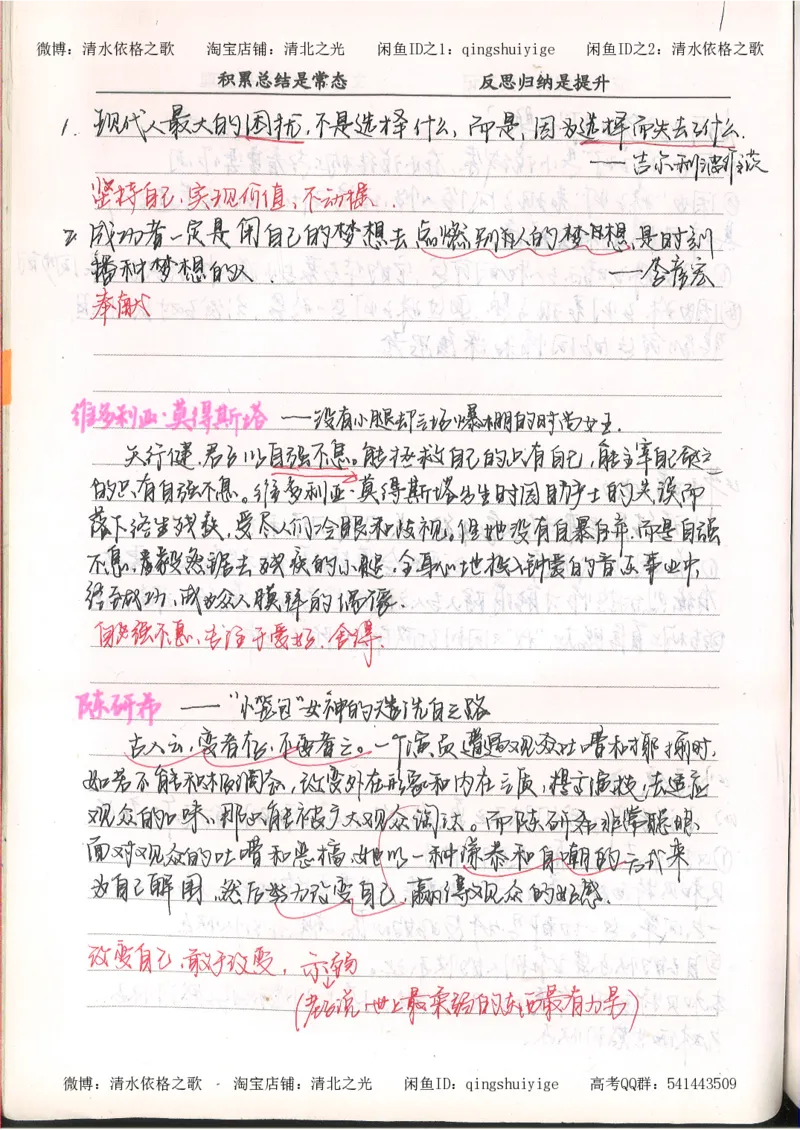 微博：清水依格之歌 淘宝店铺：清北之光 闲鱼ID之1：qingshuiyige 闲鱼ID之2：清水依格之歌
积累总结是常态 反思归纳是提升
1. 现代人最大的困扰，不是选择什么，而是，因为选择而失去了什么.
——吉尔·利波维茨
坚持自己，实现价值；不动摇.
2. 成功者一定是用自己的梦想去点燃别人的梦想，是时刻
播种梦想的人. ——李彦宏
奉献
维多利亚·莫得斯塔 ——没有小腿却立场火爆棚的时尚女王.
天行健，君子以自强不息。能拯救自己的只有自己，能主宰自己
的只有自强不息。维多利亚·莫得斯塔出生时因助护士的失误而
落下终生残疾，受尽人们冷眼和歧视。但她没有自暴自弃，而是自强
不息，着毅然锯去残疾的小腿，全身心地投入钟爱的音乐事业中，
终至成功，成为众人膜拜的偶像.
自强不息、专注于爱好、舍得.
陈研希 ——“小笼包”女神的洗白之路
古人云，变者存，不变者亡。一个演员遭遇观众吐嘈和揶揄时，
如若不能积极调众，改变外在形象和内在气质，提高演技，去适应
观众的口味，那只能被广大观众淘汰。而陈研希非常聪明，
面对观众的吐嘈和恶搞，她以一种谦恭和自嘲的方式来
为自己解围，然后努力改变自己，赢得观众的好感.
改变自己，敢于改变，示弱
(老子说，世上最柔弱的东西最有力量)
微博：清水依格之歌 - 淘宝店铺：清北之光 闲鱼ID：qingshuiyige 高考QQ群：541443509